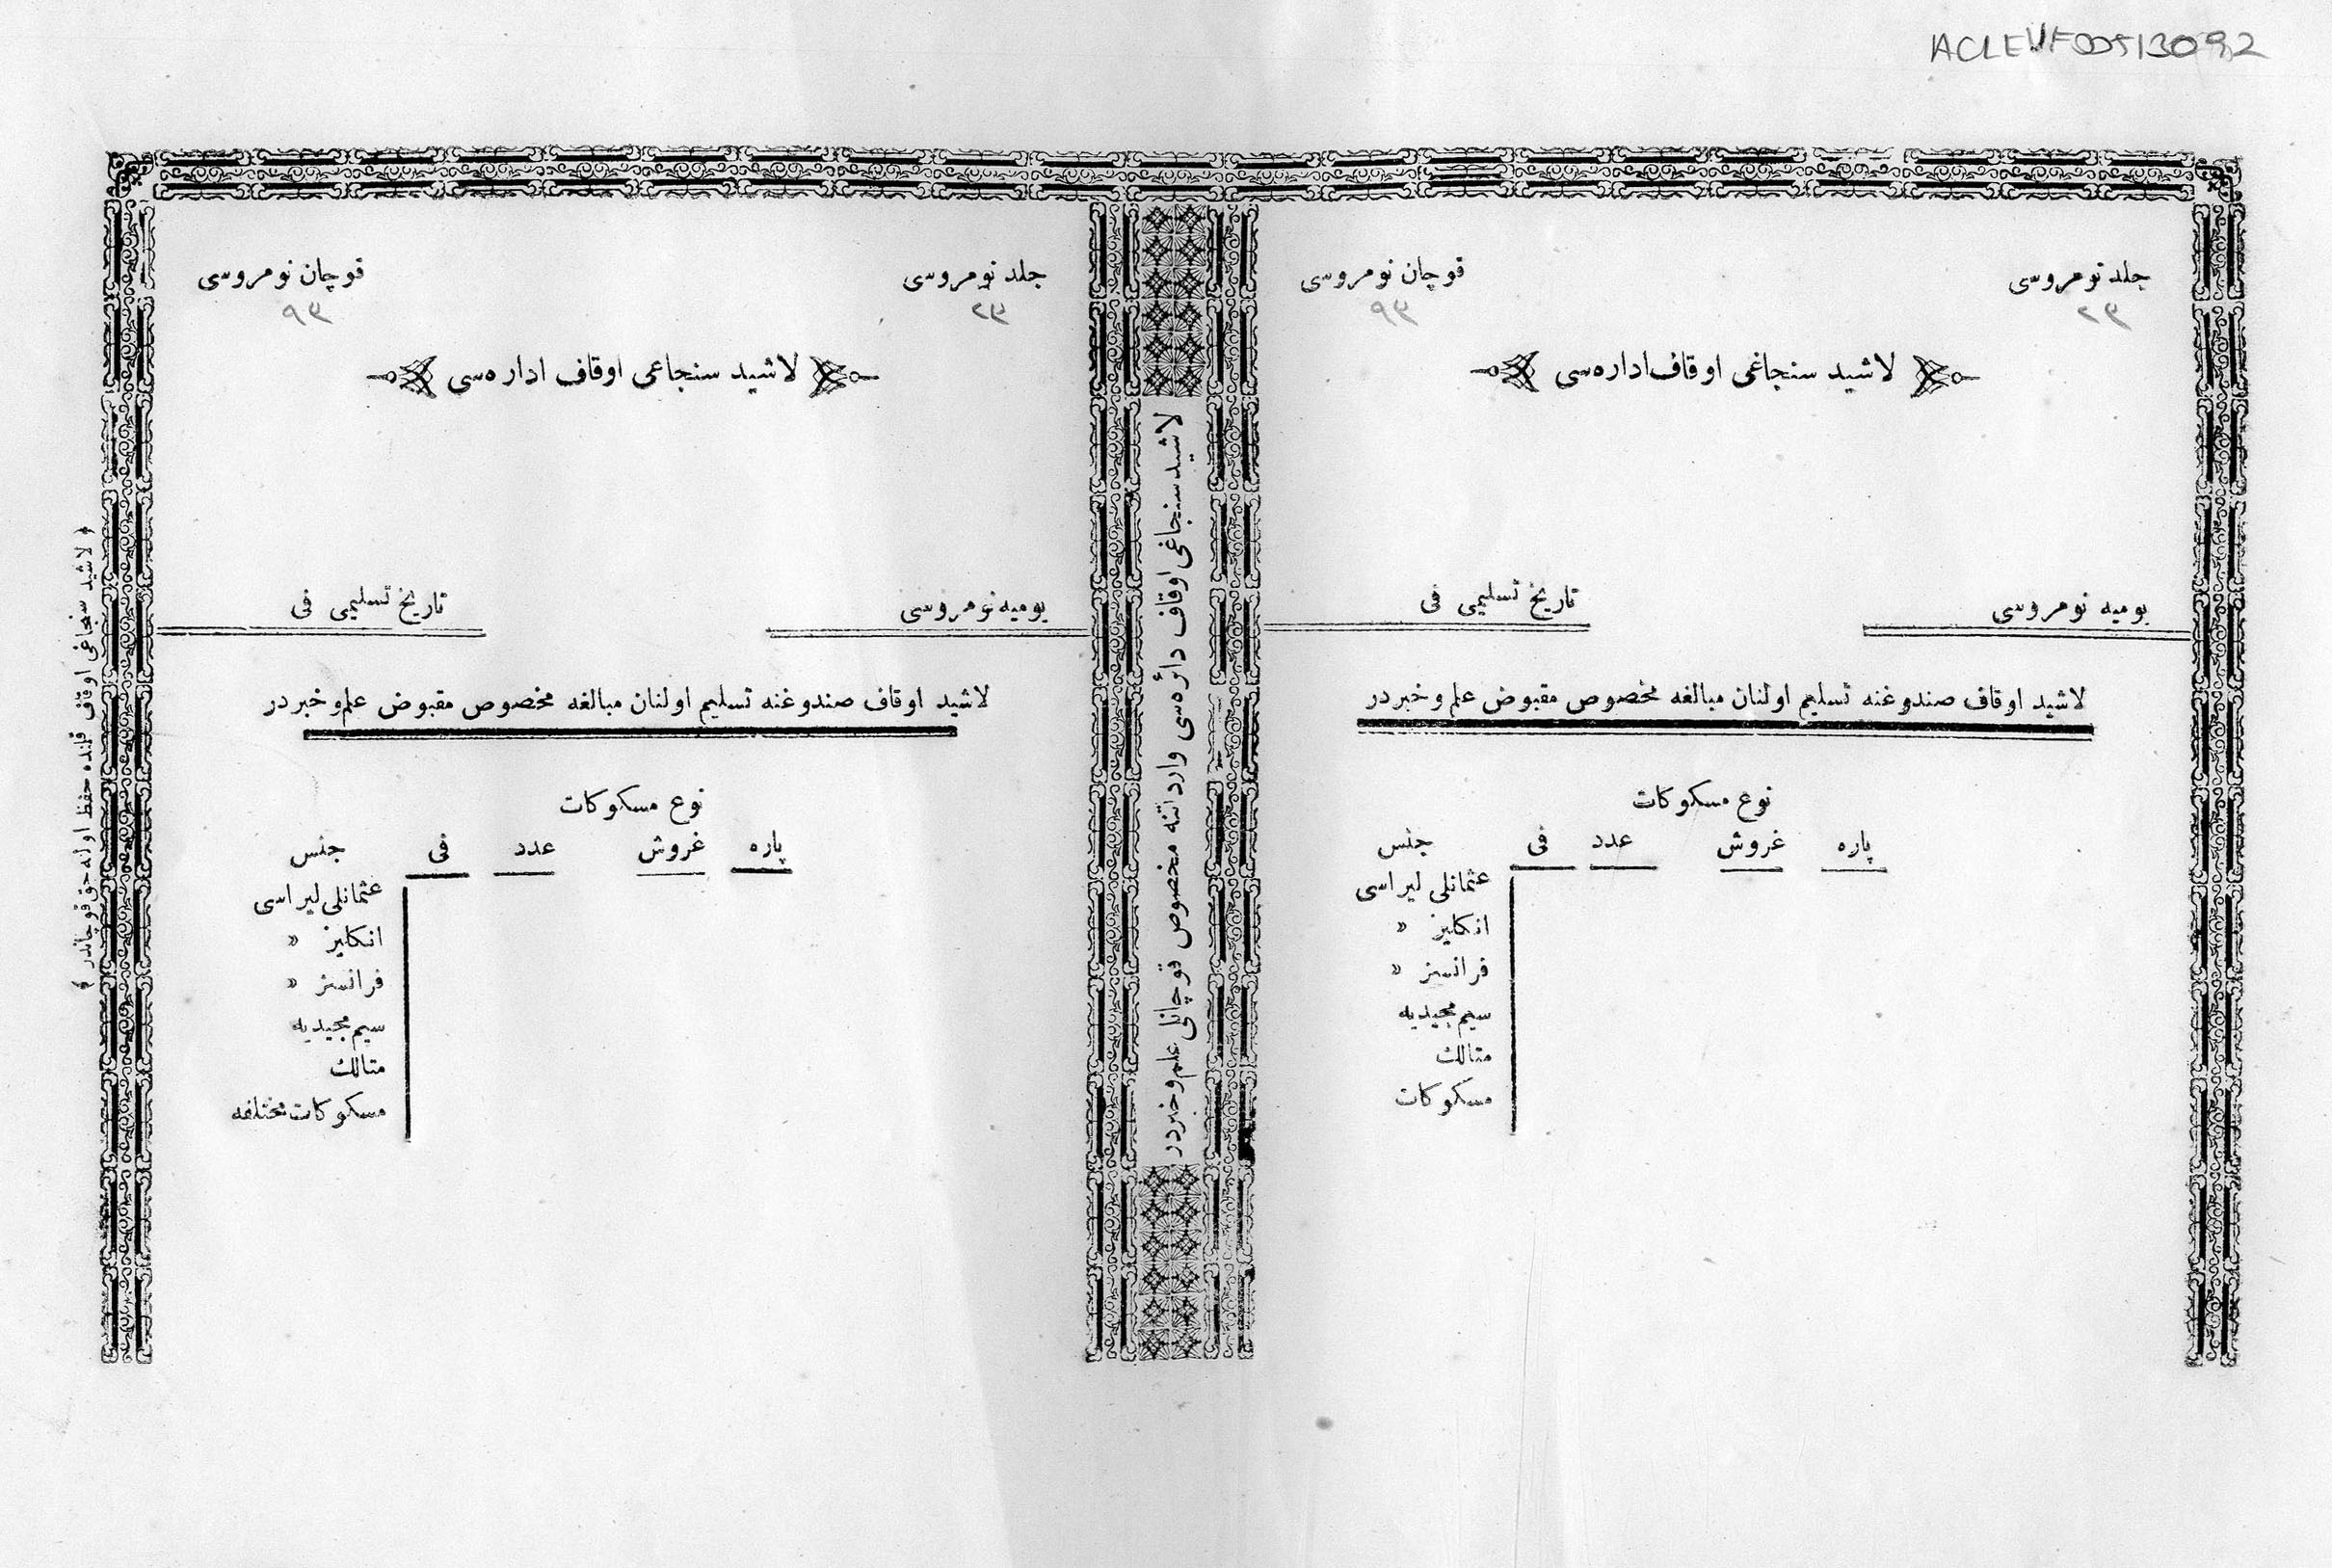 ACLEVF00513092
جلد نومروسی
۲۳
قوچان نومروسی
۹۳
لاشید سنجاغی اوقاف اداره‌سی
یومیه نومروسی
تاریخ تسلیمی فی
لاشید اوقاف صندوغنه تسلیم اولنان مبالغه مخصوص مقبوض علم و خبردر
نوع مسکوکات
پاره غروش عدد فی جنس
عثمانلی لیراسی
انکلیز »
فرانسز »
سیم مجیدیه
متالك
مسکوکات
لاشید سنجاغی اوقاف دائره‌سی وارداتنه مخصوص قوچانلی علم و خبردر
جلد نومروسی
۲۳
قوچان نومروسی
۹۳
لاشید سنجاغی اوقاف اداره‌سی
یومیه نومروسی
تاریخ تسلیمی فی
لاشید اوقاف صندوغنه تسلیم اولنان مبالغه مخصوص مقبوض علم و خبردر
نوع مسکوکات
پاره غروش عدد فی جنس
عثمانلی لیراسی
انکلیز »
فرانسز »
سیم مجیدیه
متالك
مسکوکات مختلفه
لاشید سنجاغی اوقاف قلنده حفظ اوله‌جق قوچاندر